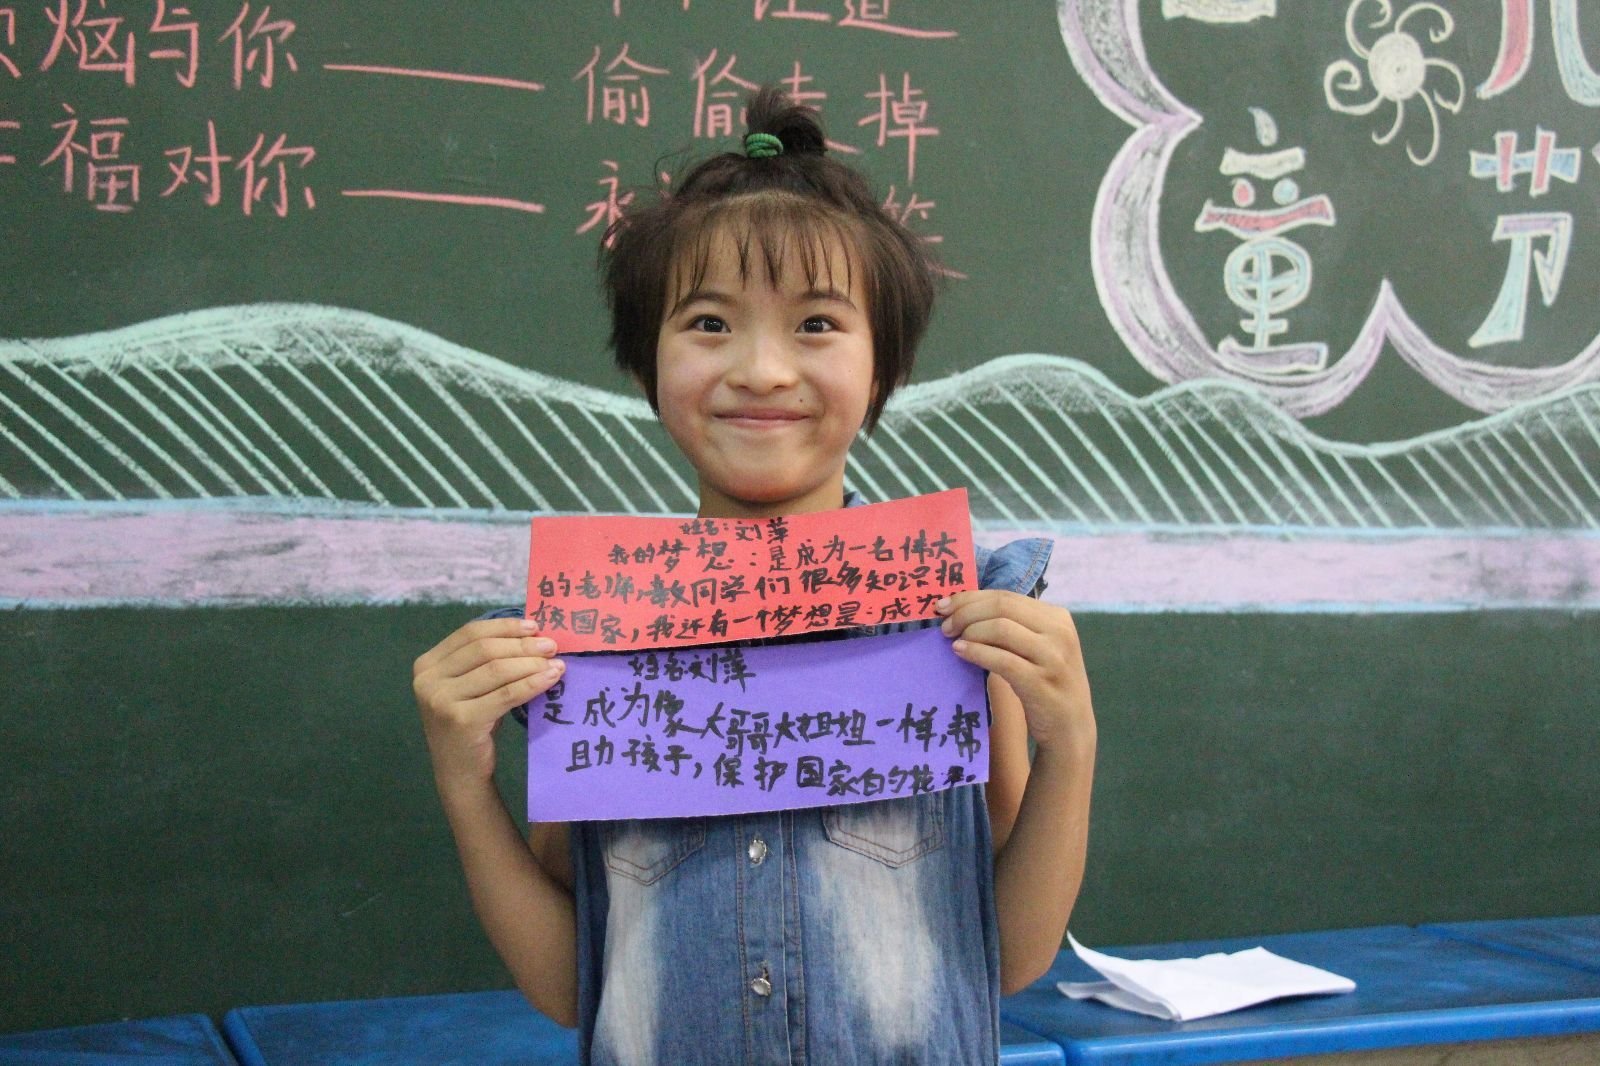 烦恼与你——
偷偷走掉
福对你——
永
儿
童节
姓名:刘萍
我的梦想:是成为一名伟大
的老师,教同学们很多知识报
效国家,我还有一个梦想是:成为
姓名刘萍
是成为像大哥哥大姐姐一样,帮
助孩子,保护国家的花朵。